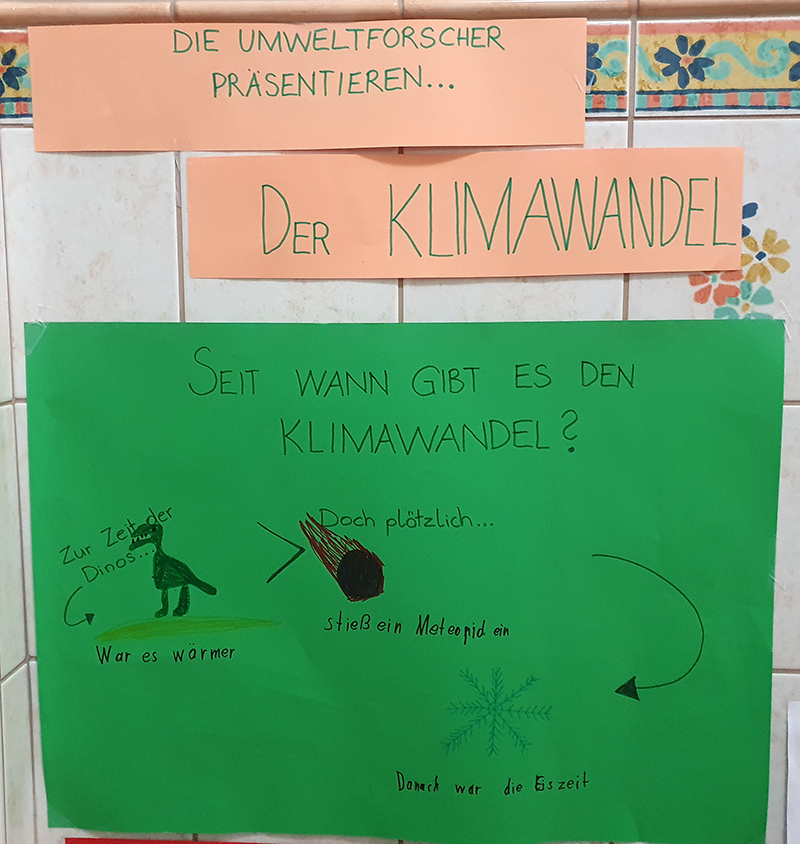 DIE UMWELTFORSCHER
PRÄSENTIEREN...
DER KLIMAWANDEL
SEIT WANN GIBT ES DEN
KLIMAWANDEL?
Zur Zeit der
Dinos...
War es wärmer
Doch plötzlich...
stieß ein Meteopid ein
Danach war die Eiszeit